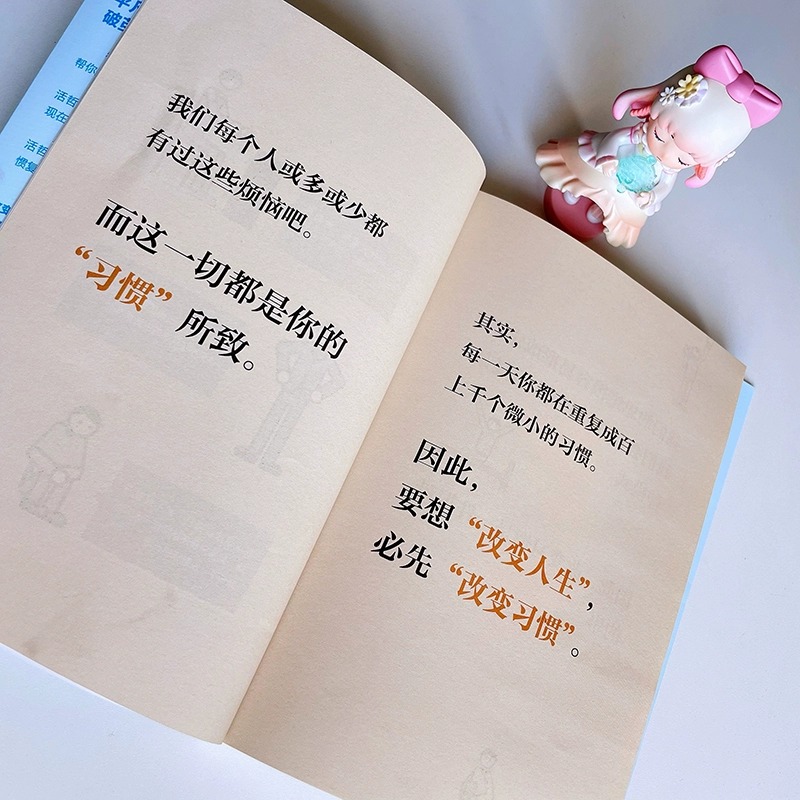 帮你
活哲
现在
活哲
惯复
我们每个人或多或少都
有过这些烦恼吧。
而这一切都是你的
“习惯”所致。
其实，
每一天你都在重复成百
上千个微小的习惯。
因此，
要想“改变人生”，
必先“改变习惯”。